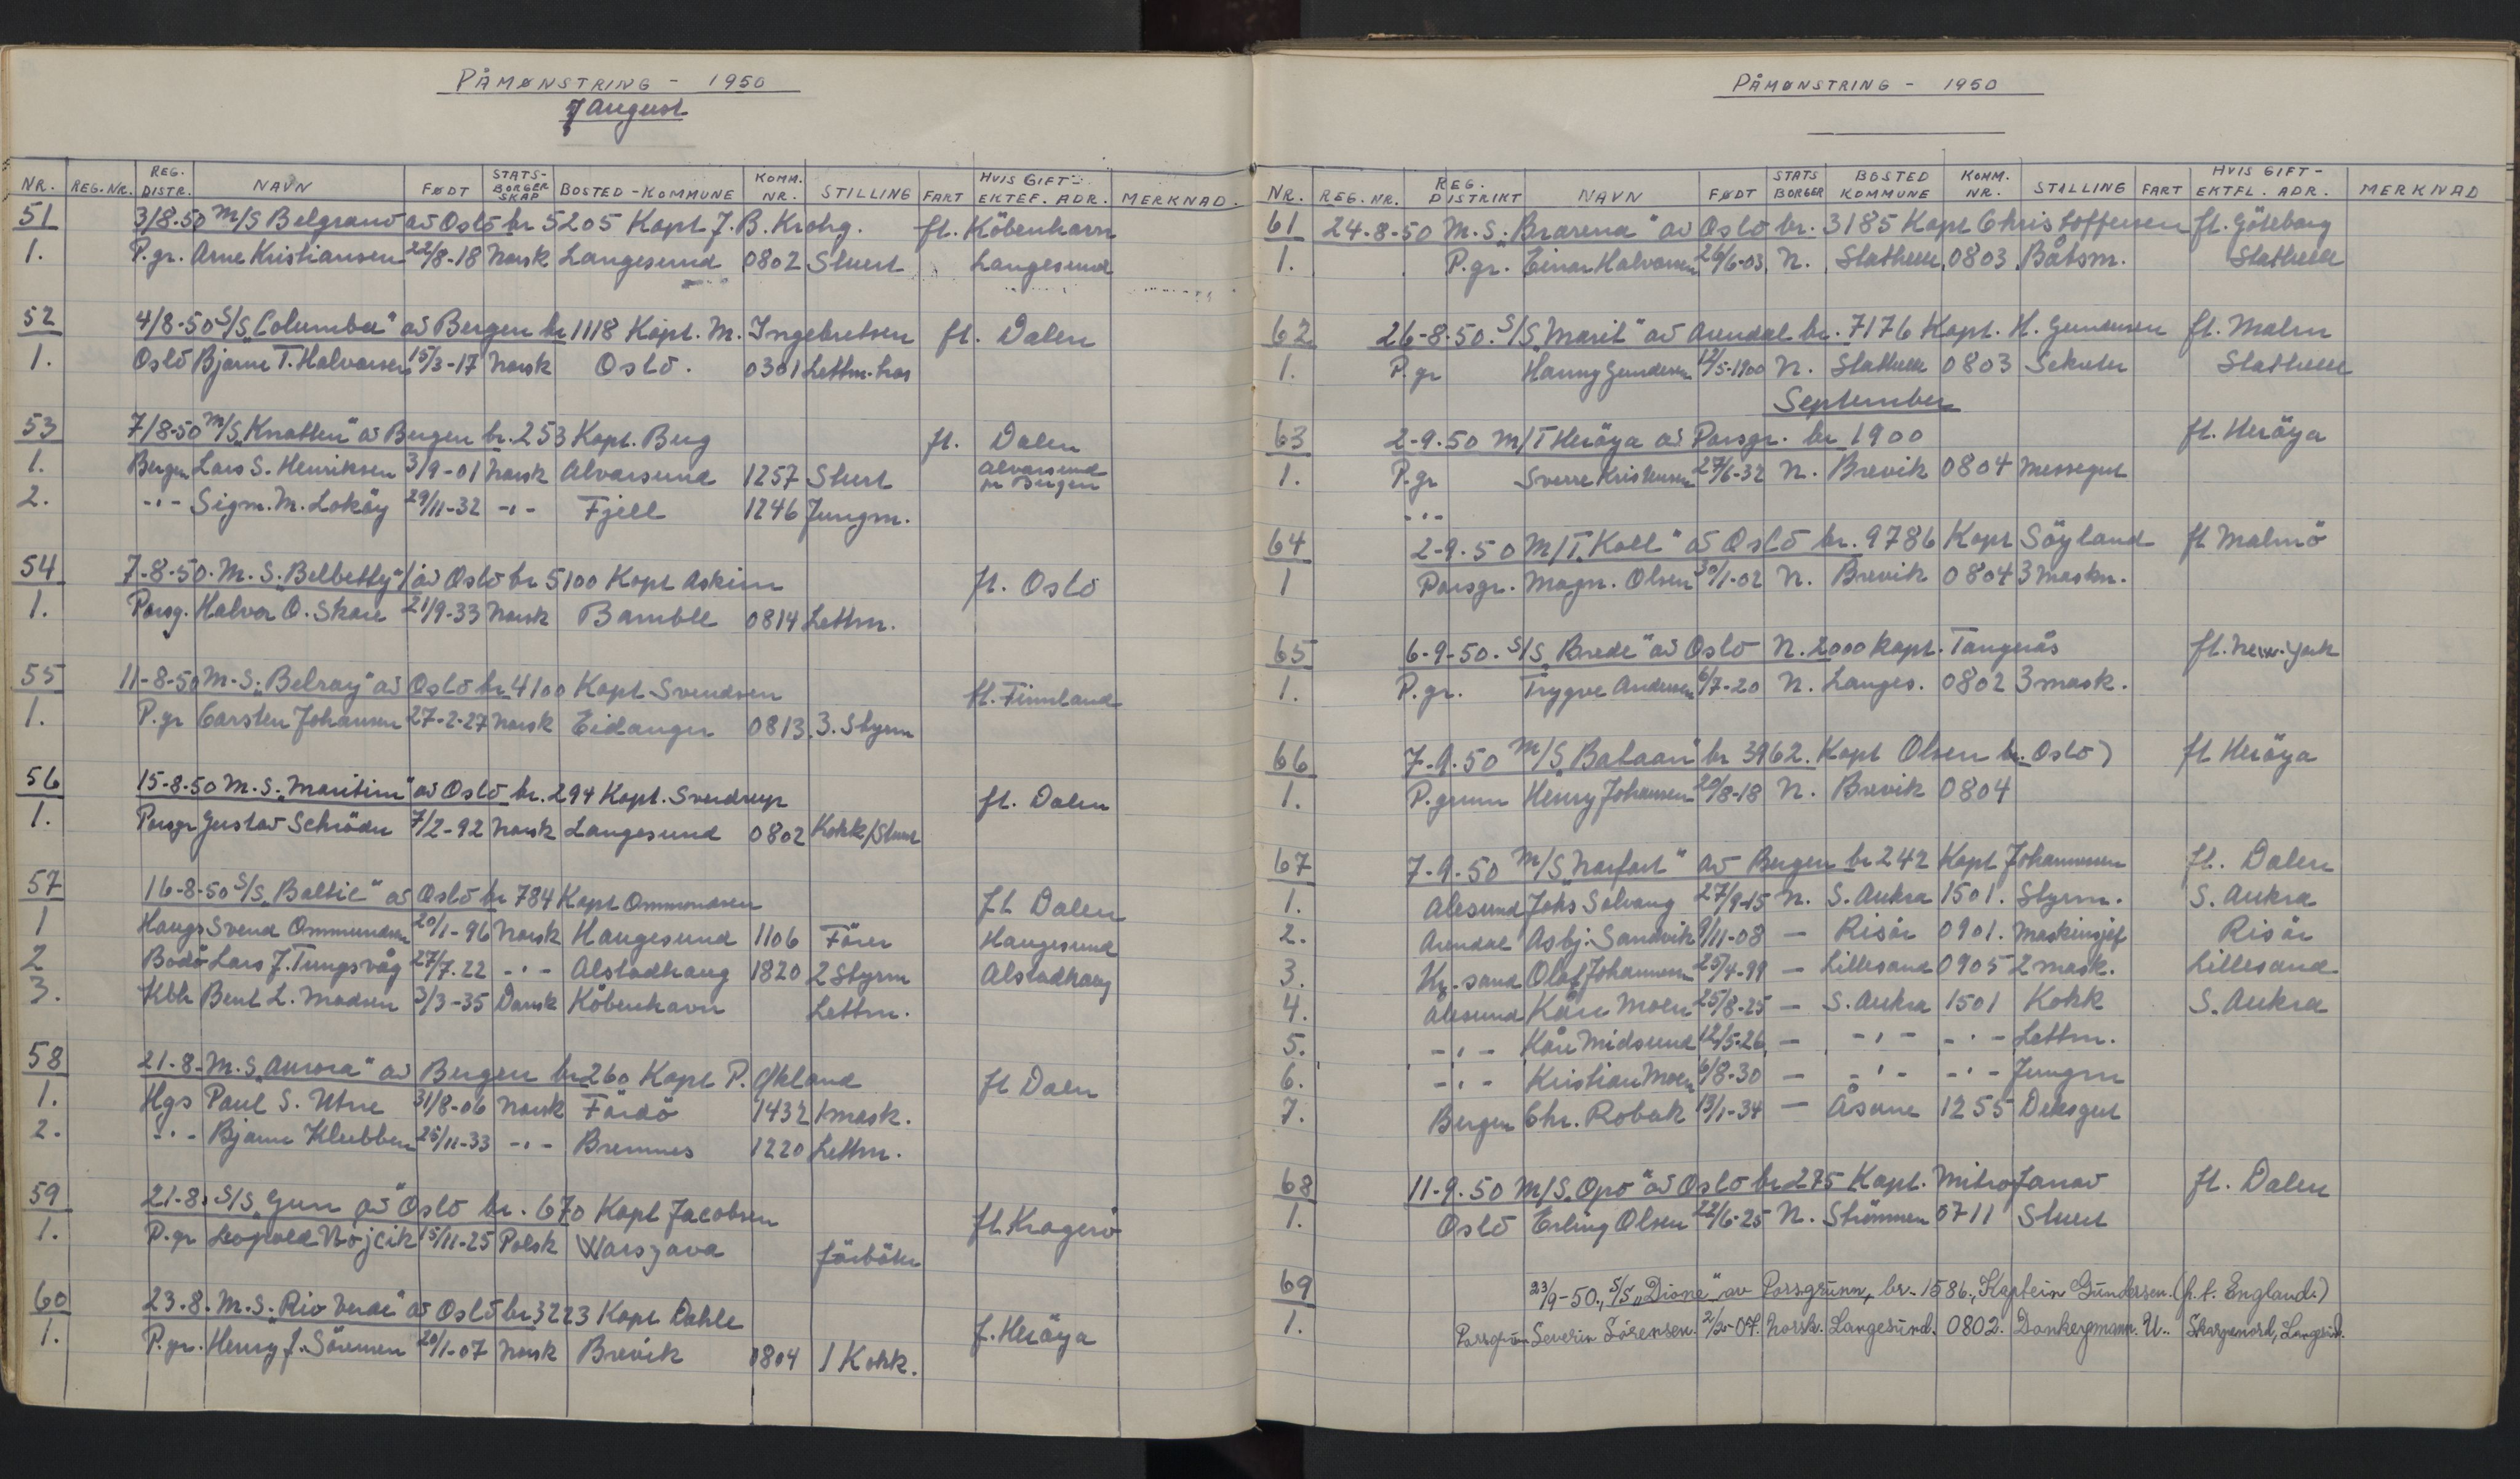 PÅMØNSTRING - 1950
August
NR. REG.NR. REG. DISTR. NAVN FØDT STATS-BORGER SKAP BOSTED-KOMMUNE KOMM. NR. STILLING FART HVIS GIFT- EKTEF. ADR. MERKNAD.
51 3/8-50 M/S Belgrano av Oslo br 5205 Kapt J. B. Krohg. ft. Köbenhavn
1. P.gr. Arne Kristiansen 22/8-18 Norsk Langesund 0802 Stuert Langesund
52 4/8-50 S/S „Columba" av Bergen br 1118 Kapt. M. Ingebretsen ft. Dalen
1. Oslo Bjarne T. Halvorsen 15/3-17 Norsk Oslo. 0301 Lettm.
53 7/8-50 M/S „Knatten" av Bergen br. 253 Kapt. Berg ft. Dalen
1. Bergen Lars S. Henriksen 3/9-01 Norsk Alvarsund 1257 Stuert Alvarsund pr Bergen
2. -"- Sigm. M. Loköy 29/11-32 -"- Fjell 1246 Jungm.
54 7-8-50. M.S. „Belbetty" av Oslo br 5100 Kapt Askim ft. Oslo
1. Porsg. Halvor O. Skare 21/9-33 Norsk Bamble 0814 Lettm.
55 11-8-50 M.S. „Belray" av Oslo br 4100 Kapt Svendsen ft. Finnland
1. P.gr Carsten Johansen 27-2-27 Norsk Eidanger 0813. 3. Styrm
56 15-8-50 M.S. „Maritim" av Oslo br. 294 Kapt. Sverdrup ft. Dalen
1. Porsgr Gustav Schröder 7/2-92 Norsk Langesund 0802 Kokk/Stuert
57 16-8-50 S/S „Baltic" av Oslo br 784 Kapt Ommundsen ft Dalen
1 Haugs Svend Ommundsen 20/1-96 Norsk Haugesund 1106 Förer Haugesund
2 Bodö Lars J. Tungsvåg 27/7.22 -"- Alstadhaug 1820 2 Styrm Alstadhaug
3. Kbh Bent L. Madsen 3/3-35 Dansk Köbenhavn Lettm.
58 21-8-M.S. „Aurora" av Bergen br 260 Kapt P. Økland ft Dalen
1. Hgs Paul S. Utne 31/8-06 Norsk Fördö 1432 1 mask.
2. -"- Bjarne Klubben 25/11-33 -"- Bremnes 1220 Lettm.
59 21-8. S/S „Gun" av Oslo br. 670 Kapt Jacobsen ft Kragerö
1. P.gr Leopold Wojcik 15/11-25 Polsk Warszava fürböter
60 23.8. M.S. „Rio Verde" av Oslo br 3223 Kapt Dahle f. Heröya
1. P.gr. Henry J. Sörensen 20/1-07 Norsk Brevik 0804 1 Kokk.
PÅMØNSTRING - 1950
NR. REG. NR. REG. DISTRIKT NAVN FØDT STATS BORGER BOSTED KOMMUNE KOMM. NR. STILLING FART HVIS GIFT- EKTFL. ADR. MERKNAD
61 24-8-50 M.S. „Brarena" av Oslo br. 3185 Kapt Christoffersen ft. Göteborg
1. P.gr. Einar Halvorsen 26/6-03 N. Stathelle 0803 Båtsm. Stathelle
62 26-8-50. S/S „Marit" av Arendal br. 7176 Kapt. H. Gundersen ft. Malm
1. P.gr Hanny Gundersen 12/5-1900 N. Stathelle 0803 Stathelle
September
63 2-9.50 M/T Heröya av Porsgr. br 1900 ft. Heröya
1. P.gr Sverre Kristensen 27/6-32 N. Brevik 0804 Messegut
-"-
64 2-9-50 M/T „Koll" av Oslo br. 9786 Kapt Söyland ft Malmö
1 Porsgr. Magn. Olsen 30/1-02 N. Brevik 0804 3 maskn.
65 6-9-50. S/S „Brede" av Oslo N. 2000 Kapt. Tangerås ft. New-York
1. P.gr. Trygve Andersen 6/7-20 N. Langes. 0802 3 mask.
66 7-9.50 M/S „Bataan" br 3962. Kapt Olsen br. Oslo) ft Heröya
1. P.grunn Henry Johansen 20/8-18 N. Brevik 0804
67 7-9.50 M/S „Norfart" av Bergen br 242 Kapt Johannessen ft. Dalen
1. Alesund Johs Solvang 27/9-15 N. S. Aukra 1501. Styrm. S. Aukra
2. Arendal Asbj. Sandvik 9/11-08 - Risör 0901. Maskinsjef Risör
3. Kr.sand Olaf Johannesen 25/4-99 - Lillesand 0905 2 mask. Lillesand
4. Alesund Kåre Moen 25/8-25 - S. Aukra 1501 Kokk S. Aukra
5. -"- Kåre Midsund 12/5-26 - -"- -"- Lettm.
6. -"- Kristian Moen 6/8-30 - -"- -"- Jungm
7. Bergen Chr. Robak 13/1-34 - Åsane 1255 Deksgut
68 11-9.50 M/S „Opo" av Oslo br 275 Kapt. Mitrofanov ft. Dalen
1. Oslo Erling Olsen 22/6-25 N. Strömmen 0711 Stuert
69 23/9-50., S/S „Dione" av Porsgrunn, br. 1586., Kaptein Gundersen. (f.t. England.)
1. Porsgrunn Severin Sörensen. 07. Norsk. Langesund. 0802. Donkeymann. U.. Langesund.